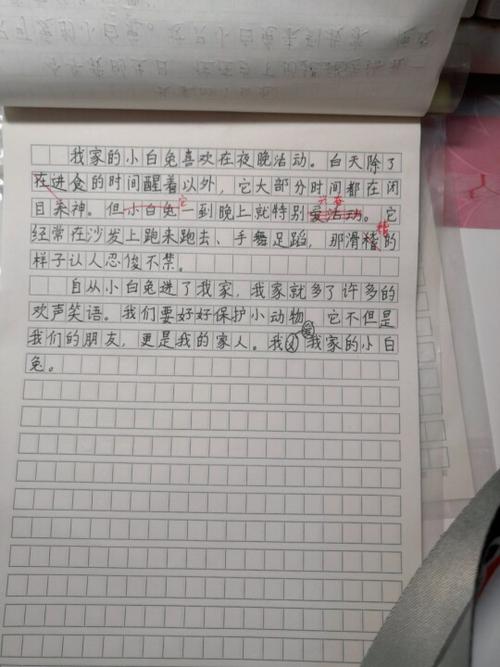 我家的小白兔喜欢在夜晚活动。白天除了
在进食的时间醒着以外，它大部分时间都在闭
目养神。但小白兔它一到晚上就特别爱活动。它
经常在沙发上跑来跑去、手舞足蹈，那滑稽的
样子让人忍俊不禁。
自从小白兔进了我家，我家就多了许多的
欢声笑语。我们要好好保护小动物，它不但是
我们的朋友，更是我的家人。我爱我家的小白
兔。